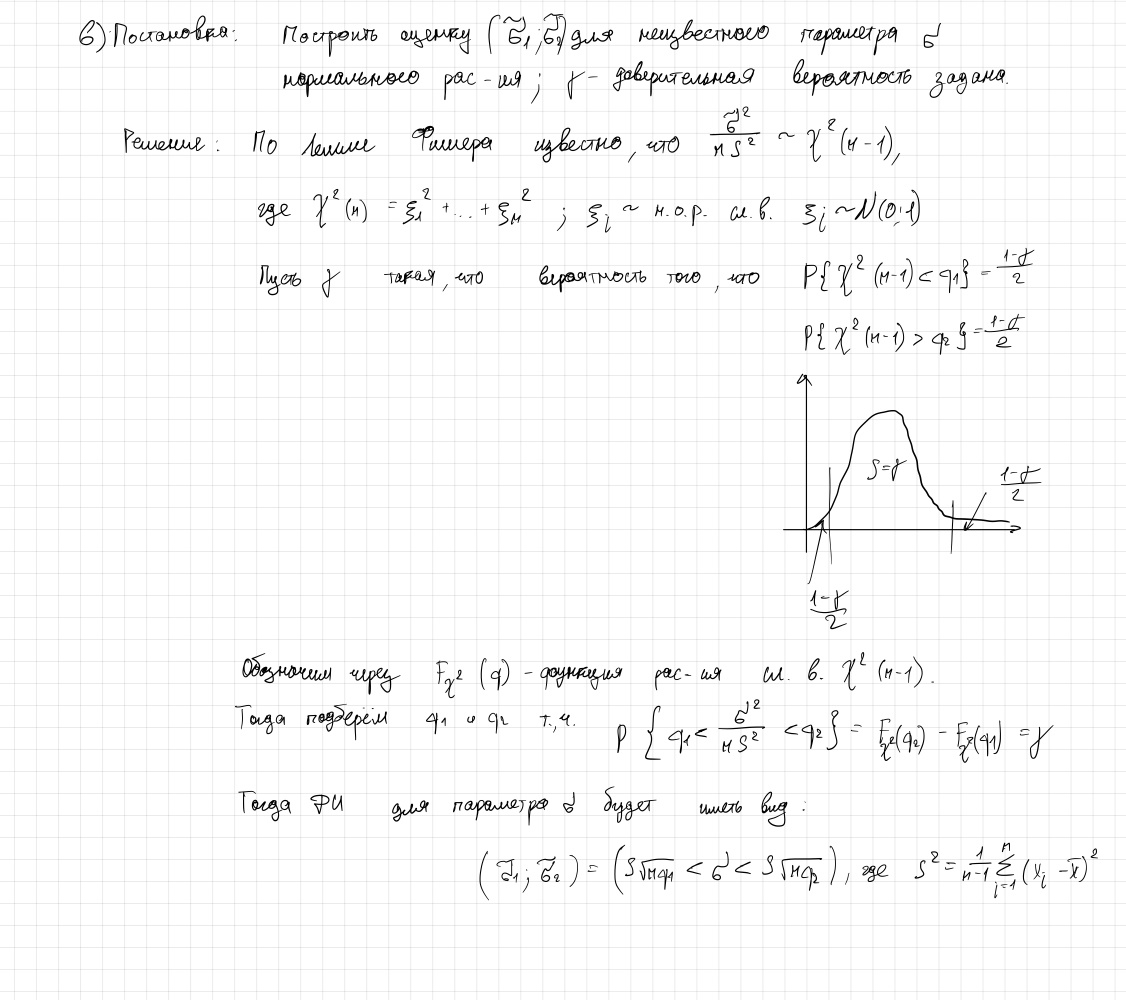 6) Постановка: Построить оценку (σ̃₁; σ̃₂) для неизвестного параметра σ
нормального рас-ия; γ - доверительная вероятность задана.
Решение: По лемме Фишера известно, что σ̃²/(nS²) ~ χ²(n-1),
где χ²(n) = ξ₁² + ... + ξₙ² ; ξᵢ ~ н.о.р. сл.в. ξᵢ ~ N(0;1)
Пусть γ такая, что вероятность того, что P{χ²(n-1) < q₁} = (1-γ)/2
P{χ²(n-1) > q₂} = (1-γ)/2
S=γ
(1-γ)/2
(1-γ)/2
Обозначим через F_χ²(q) - функция рас-ия сл. в. χ²(n-1).
Тогда подберём q₁ и q₂ т.ч. P{q₁ < σ̃²/(nS²) < q₂} = F_χ²(q₂) - F_χ²(q₁) = γ
Тогда ДИ для параметра σ будет иметь вид:
(σ̃₁; σ̃₂) = (S√(nq₁) < σ < S√(nq₂)), где S² = 1/(n-1) Σⁿᵢ₌₁ (xᵢ - x̄)²